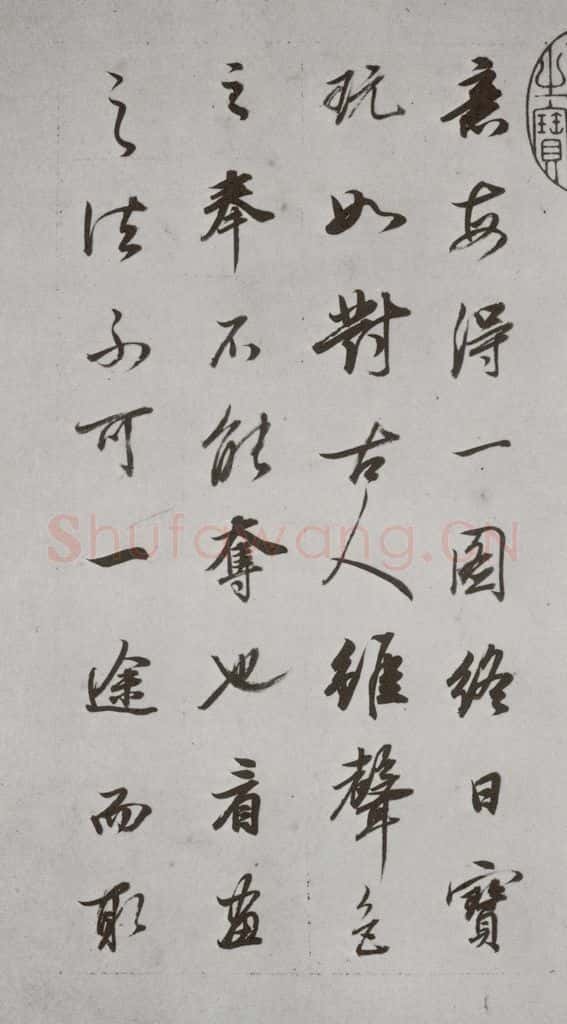 意每得一圖終日寶
玩如對古人雖聲色
之奉不能奪也看畫
之法不可一途而取
之寶
Shufawang.CN